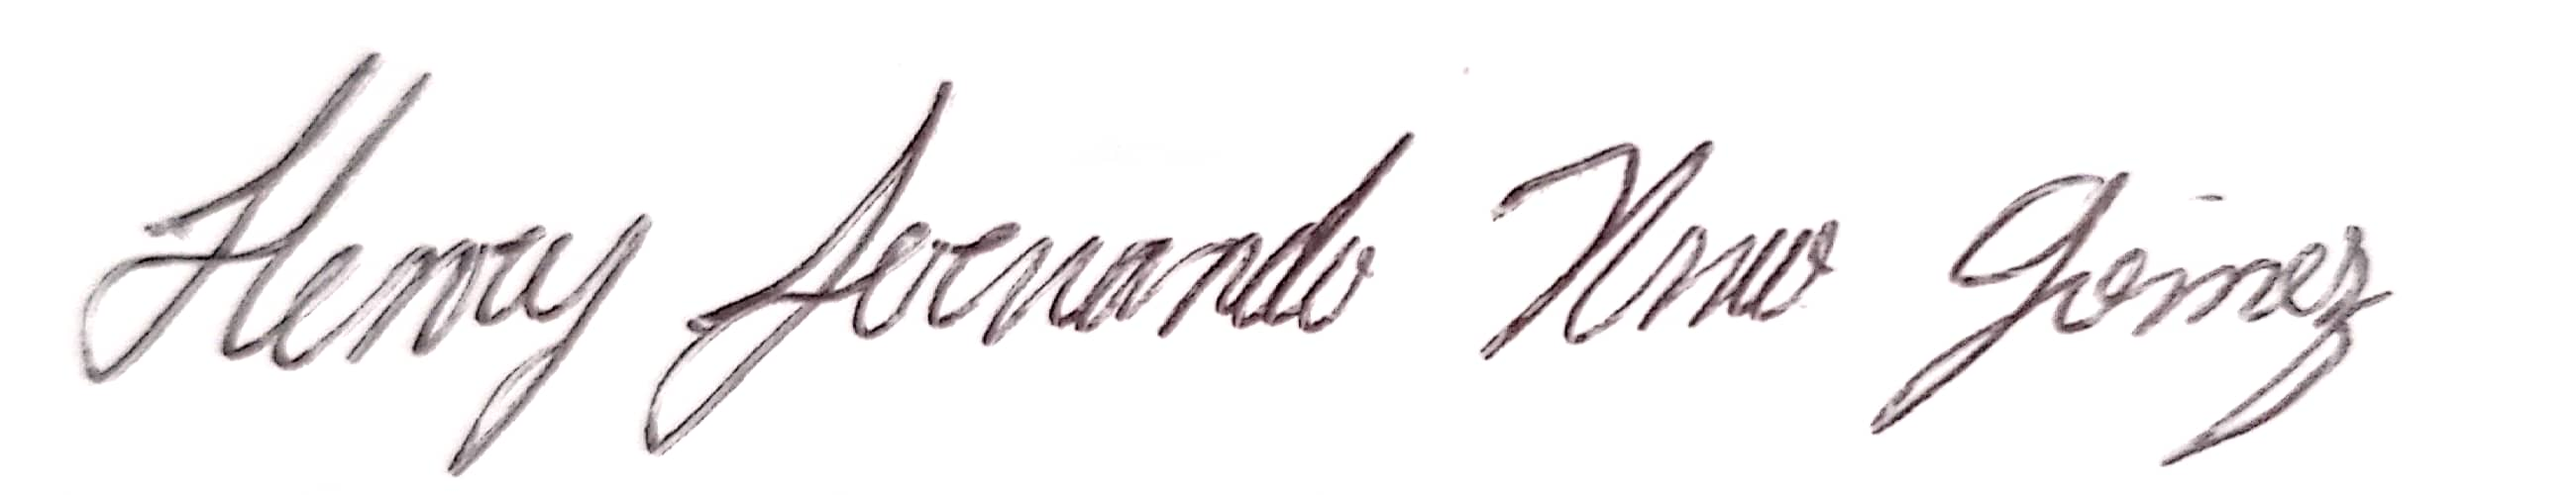 Henry Fernando Gómez